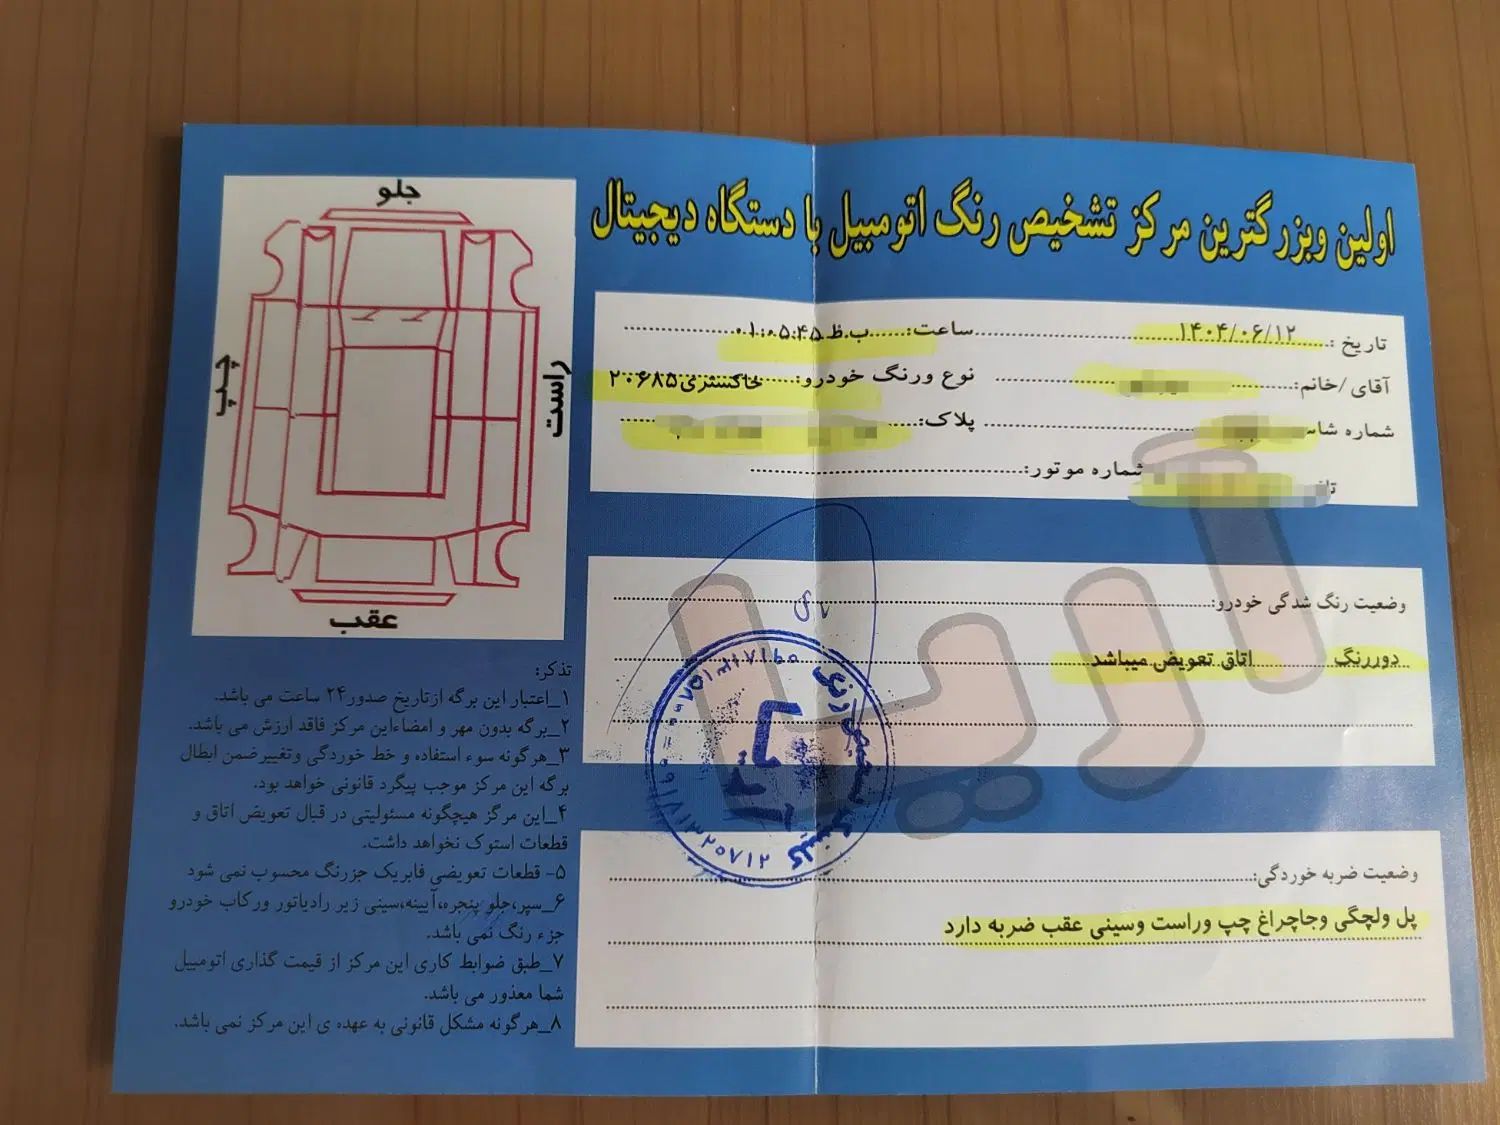 اولین وبزرگترین مرکز تشخیص رنگ اتومبیل با دستگاه دیجیتال
تاریخ: ۱۴۰۴/۰۶/۱۲ ساعت: ۰۱:۰۵:۴۵ ب.ظ
آقای/خانم: نوع ورنگ خودرو: خاکستری ۲۰۶۸۵
شماره پلاک:
شماره موتور:
وضعیت رنگ شدگی خودرو:
دوررنگ اتاق تعویض میباشد
وضعیت ضربه خوردگی:
پل ولچگی وجاچراغ چپ وراست وسینی عقب ضربه دارد
آریا
جلو
چپ
راست
عقب
تذکر:
۱_اعتبار این برگه ازتاریخ صدور۲۴ ساعت می باشد.
۲_برگه بدون مهر و امضاءاین مرکز فاقد ارزش می باشد.
۳_هرگونه سوء استفاده و خط خوردگی وتغییرضمن ابطال
برگه این مرکز موجب پیگرد قانونی خواهد بود.
۴_این مرکز هیچگونه مسئولیتی در قبال تعویض اتاق و
قطعات استوک نخواهد داشت.
۵- قطعات تعویضی فابریک جزرنگ محسوب نمی شود
۶_سپر،جلو پنجره،آیینه،سینی زیر رادیاتور ورکاب خودرو
جزء رنگ نمی باشد.
۷_طبق ضوابط کاری این مرکز از قیمت گذاری اتومبیل
شما معذور می باشد.
۸_هرگونه مشکل قانونی به عهده ی این مرکز نمی باشد.